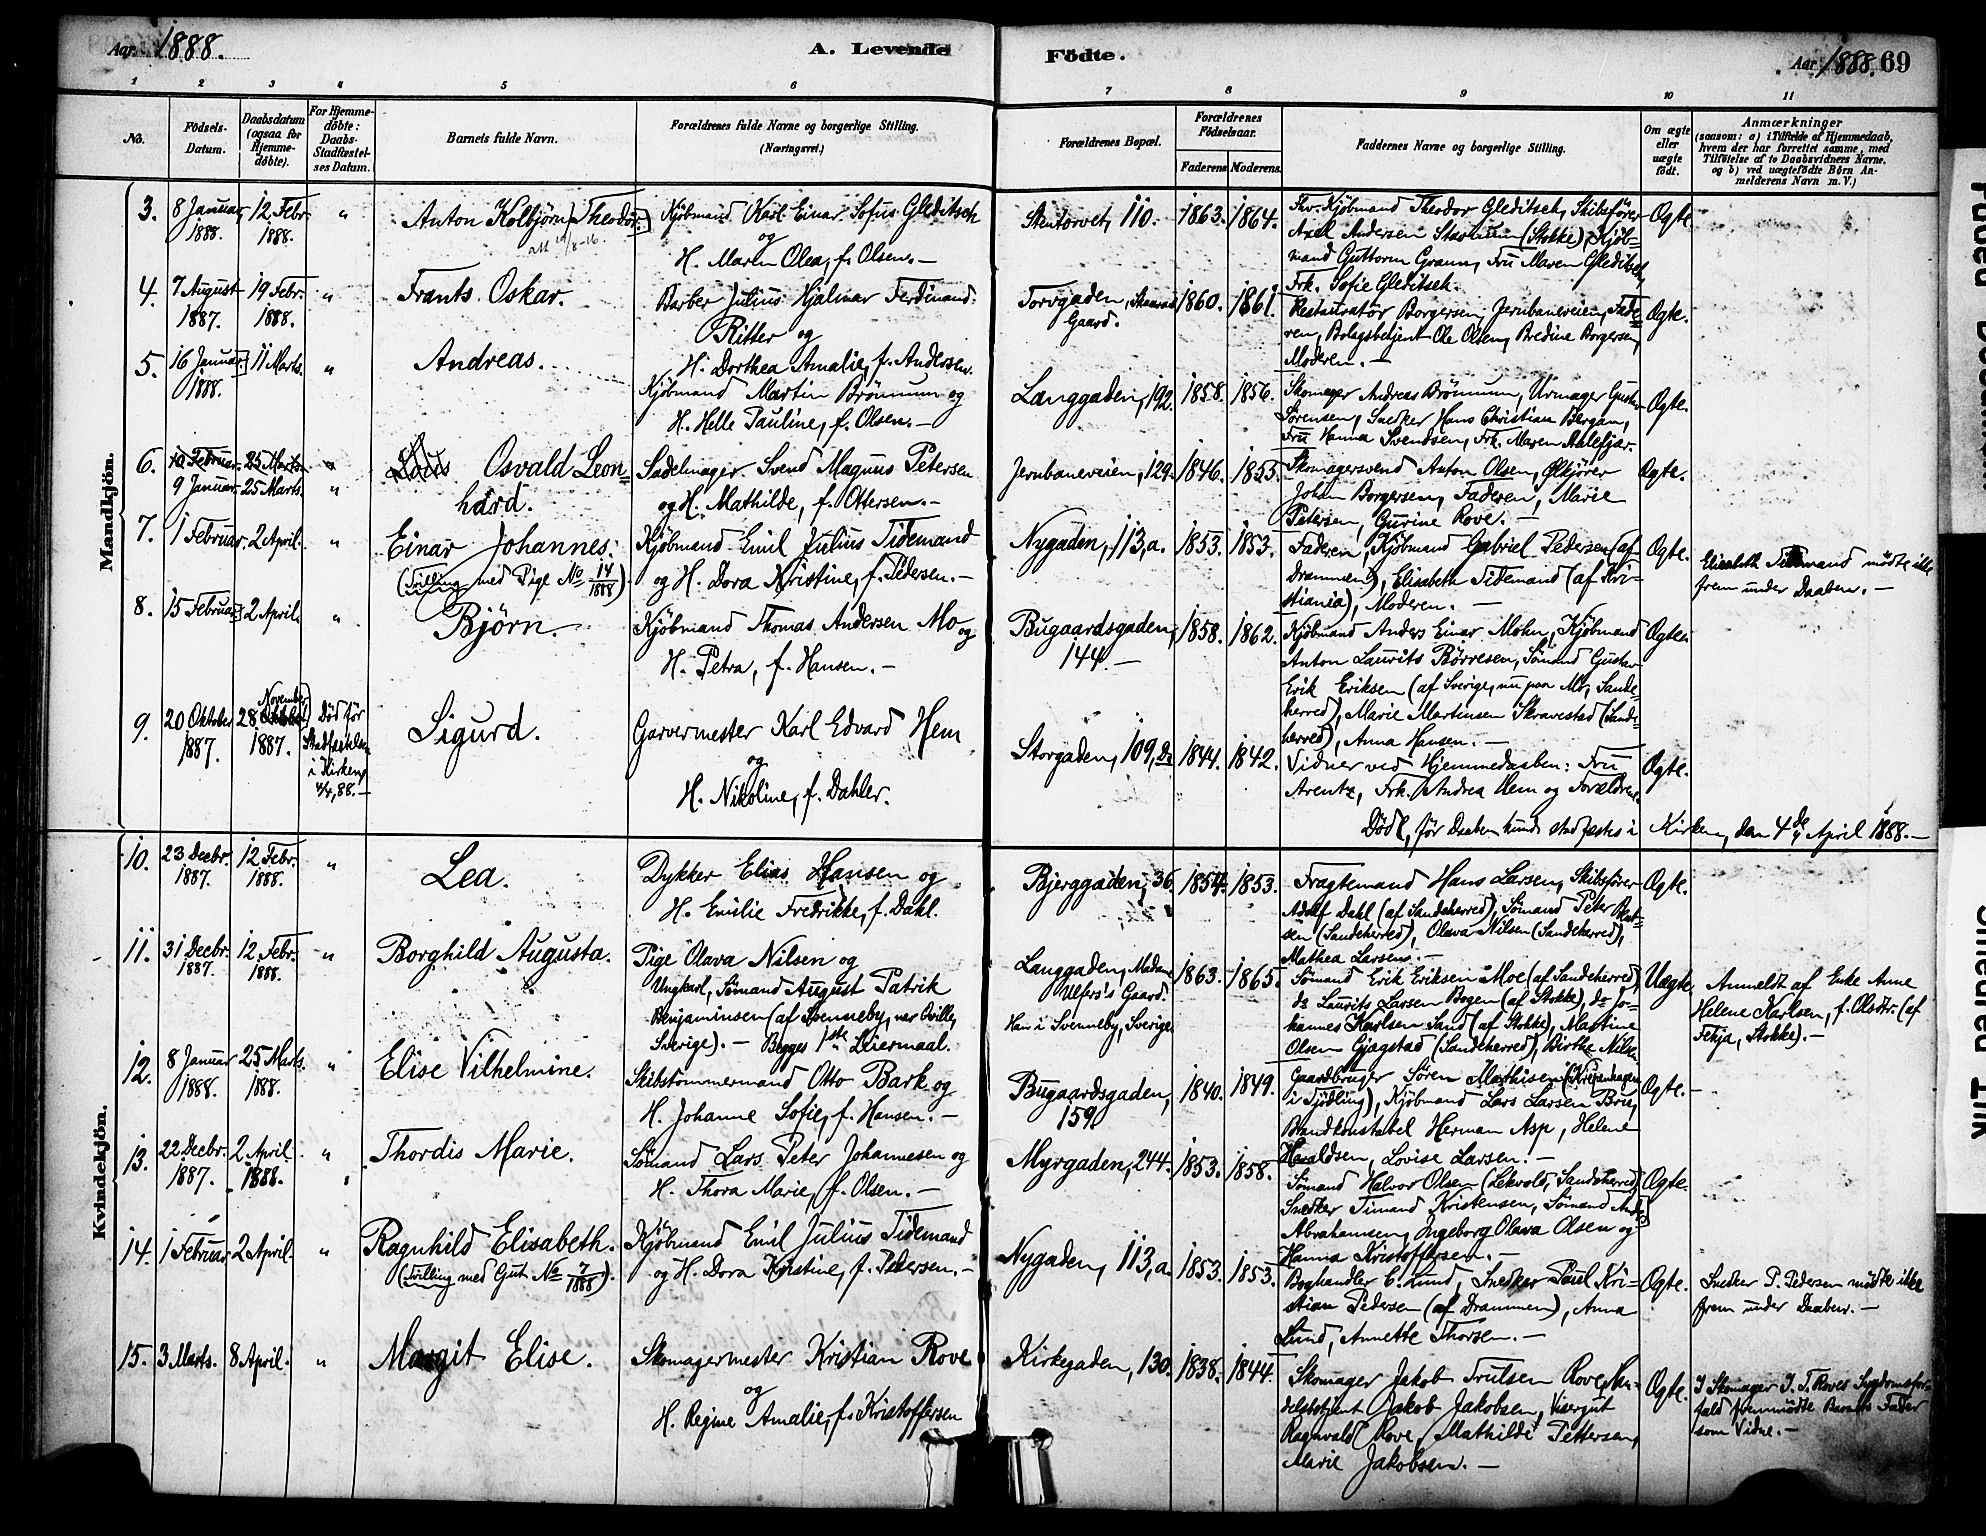 Aar 1888. A. Levende Födte. Aar 1888. 69
1 2 3 4 5 6 7 8 9 10 11
No. Födsels-Datum. Daabsdatum (ogsaa for Hjemmedöbte). For Hjemmedöbte: Daabs-Stadfæstelses Datum. Barnets fulde Navn. Forældrenes fulde Navne og borgerlige Stilling. (Næringsvei.) Forældrenes Bopæl. Forældrenes Födselsaar. Faderens Moderens. Faddernes Navne og borgerlige Stilling. Om ægte eller uægte født. Anmærkninger
(saasom: a) i Tilfælde af Hjemmedaab, hvem der har forrettet samme, med Tilföielse af to Daabsvidners Navne, og b) ved uægtefödte Börn Anmelderens Navn m. V.)
Mandkjön.
3. 8 Januar 1888. 12 Febr. 1888. " Anton Kolbjørn (Theodor.)
Kjøbmand Karl Einar Sofus Gleditsch
og
H. Maren Olea, f. Olsen. —
Stentorvet, 110. 1863. 1864.
Kjøbmand Theodor Gleditsch, Skibsfører
Axel Andersen Stavnum (Stokke), Kjøb-
mand Guttorm Gram, Fru Maren Gleditsch,
Frk. Sofie Gleditsch.
Ægte.
4. 7 August 1887. 19 Febr. 1888. " Frants Oskar.
Barber Julius Hjalmar Ferdinand
Ritter og
H. Dorthea Amalie, f. Andersen.
Torvgaden, Gaard. 1860. 1861.
Restauratør Borgersen, Jernbaneveien, Fade-
ren, Bolagsbetjent Ole Olsen, Bredine Borgersen,
Moderen. —
Ægte.
5. 16 Januar 1888. 11 Marts. " Andreas.
Kjøbmand Martin Brönnum og
H. Helle Pauline, f. Olsen. —
Langgaden, 192. 1858. 1856.
Skomager Andreas Brönnum, Urmager Gustav
Sørensen, Snedker Hans Christian Bergan,
Fru Hanna Svendsen, Frk. Maren Aalefjær.
Ægte.
6. 10 Februar. 25 Marts. "
9 Januar. 25 Marts. " Osvald Leon-
hard.
Sadelmager Svend Magnus Petersen
og H. Mathilde, f. Ottersen. —
Jernbaneveien, 129. 1846. 1855.
Skomagersvend Anton Olsen, Ølkjører
Johan Borgersen, Faderen, Marie
Petersen, Gurine Rove. —
Ægte.
7. 1 Februar. 2 April. " Einar Johannes.
(Tvilling med Pige No 14/1888).
Kjøbmand Emil Julius Tidemand
og H. Dora Kristine, f. Pedersen. —
Nygaden, 113, a. 1853. 1853.
Faderen, Kjøbmand Gabriel Pedersen (af
Drammen), Elisabeth Tidemand (af Kri-
stiania), Moderen. —
Ægte.
Elisabeth Tidemand mödte ikke
frem under Daaben. —
8. 15 Februar. 2 April. " Björn.
Kjøbmand Thomas Andersen Mo og
H. Petra, f. Hansen. —
Bugaardsgaden, 144 — 1858. 1862.
Kjøbmand Anders Einar Mohn, Kjøbmand
Anton Laurits Børresen, Sömand Gustav
Erik Eriksen (af Sverige, nu paa Mo, Sande-
herred), Marie Martinsen Skravestad (Sande-
herred), Anna Hansen. —
Ægte.
9. 20 Oktober 1887. 28 November 1887. Död før Stadfæstelsen i Kirken 4/4, 88. — Sigurd.
Garvermester Karl Edvard Hem
og
H. Nikoline, f. Dahler.
Storgaden, 109, 1844. 1842.
Vidner ved Hjemmedaaben: Fru
Arentz, Frk. Andrea Hem og Forældrene.
Ægte.
Död, før Daaben kunde stadfæstes i Kirken, den 4de April 1888. —
Kvindekjön.
10. 23 Decbr. 1887. 12 Febr. 1888. " Lea.
Dykker Elias Hansen og
H. Emilie Fredrikke, f. Dahl.
Bjerggaden, 36. 1854. 1853.
Fragtemand Hans Larsen, Skibsfører
Adolf Dahl (af Sandeherred), Sömand Peter Bent-
sen (Sandeherred), Olava Nilsen (Sandeherred),
Mathea Larsen. —
Ægte.
11. 31 Decbr. 1887. 12 Febr. 1888. " Borghild Augusta.
Pige Olava Nilsen og
Ungkarl, Sömand August Patrik
Benjaminsen (af Svenneby, nær Qville,
Sverige). — Begges 1ste Leiermaal.
Langgaden, Madame Ulfers's Gaard.
Han i Svenneby, Sverige.
1863. 1865.
Sömand Erik Eriksen Moe (af Sandeherred)
do Laurits Larsen Bogen (af Stokke), do Jo-
hannes Karlsen Sand (af Stokke), Martine
Olsen Gjøgstad (Sandeherred), Birthe Nilsen
Uægte.
Anmeldt af Enke Anne
Helene Karlsen, f. Olsdtr. (af
Fekja, Stokke). —
12. 8 Januar 1888. 25 Marts 1888. " Elise Vilhelmine.
Skibstømmermand Otto Bark og
H. Johanne Sofie, f. Hansen. —
Bugaardsgaden, 159. 1840. 1849.
Gaardbruger Sören Mathisen (Krepenhagen
i Tjödling), Kjøbmand Lars Larsen Bru,
Brandkonstabel Herman Asp, Helene
Haraldsen, Lovise Larsen. —
Ægte. —
13. 22 Decbr. 1887. 2 April 1888. " Thordis Marie.
Sömand Lars Peter Johannesen og
H. Thora Marie, f. Olsen. —
Myrgaden, 244. 1853. 1858.
Sömand Halvor Olsen (Lekvold, Sandeherred)
Snedker Timand Kristensen, Sömand
Abrahamsen, Ingeborg Olava Olsen og
Hanna Kristoffersen. —
Ægte.
14. 1 Februar 2 April. " Ragnhild Elisabeth.
(Tvilling med Gut No 7/1888).
Kjøbmand Emil Julius Tidemand
og H. Dora Kristine, f. Pedersen. —
Nygaden, 113, a. 1853. 1853.
Boghandler C. Lund, Snedker Paul Kri-
stian Pedersen (af Drammen), Anna
Lund, Annette Thorsen. —
Ægte.
Snedker P. Pedersen mödte ikke
frem under Daaben. —
15. 3 Marts. 8 April. " Margit Elise.
Skomagermester Kristian Rove
og
H. Regine Amalie, f. Kristoffersen
Kirkegaden, 130. 1838. 1844.
Skomager Jakob Trulsen Rove, Han-
delsbetjent Jakob Jakobsen, Visergut
Ragnvald Rove, Mathilde Pettersen,
Marie Jakobsen. —
Ægte.
I Skomager J. T. Roves Sygdomsfor-
fald fremmödte Barnets Fader
som Vidne. —